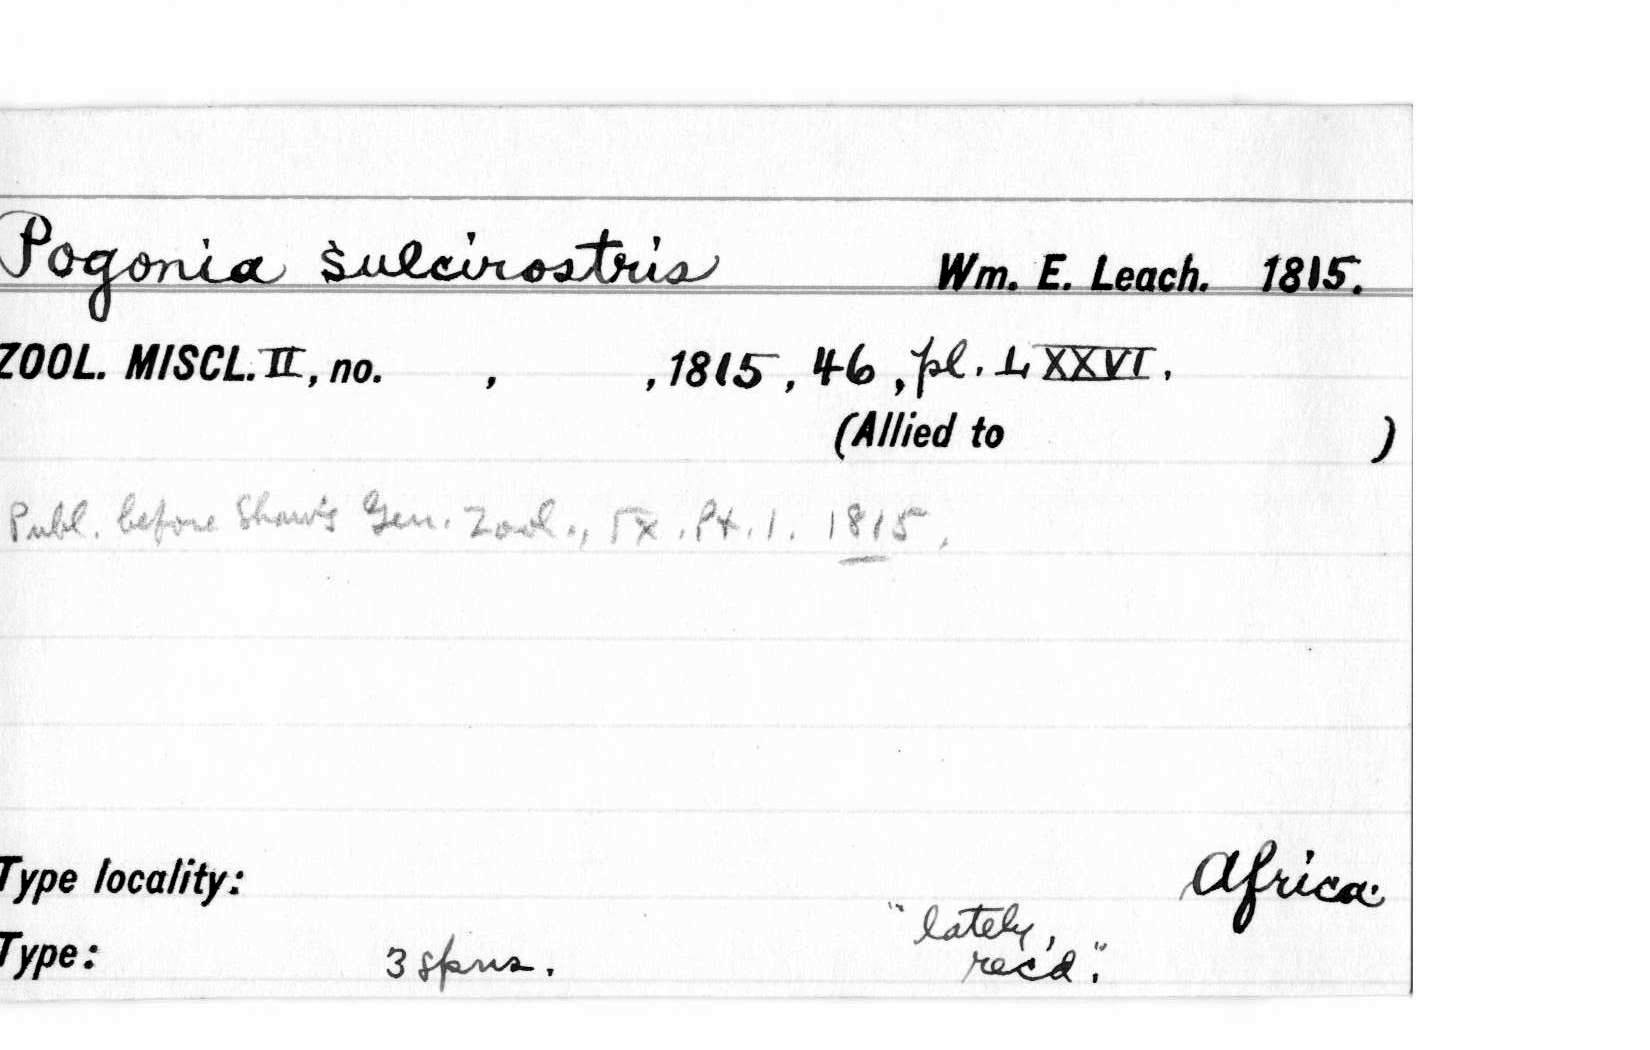 Pogonia sulcirostris Wm. E. Leach. 1815.
ZOOL. MISCL. II, no. , , 1815, 46, pl. LXXVI.
(Allied to )
Publ. before Shaw's Gen. Zool., IX, Pt. 1. 1815.
Type locality: Africa.
"lately,
Type: 3 spns. rec'd."